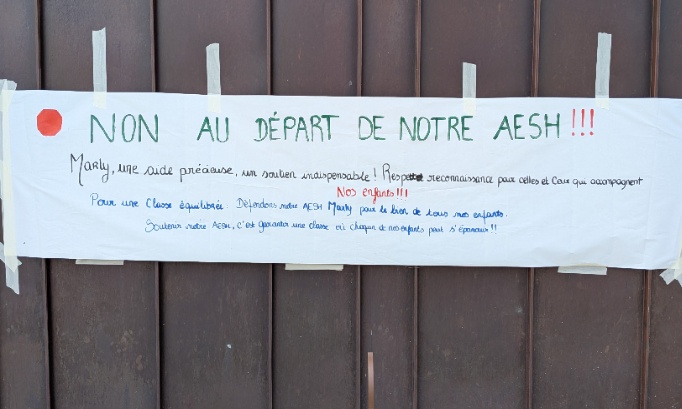 NON AU DÉPART DE NOTRE AESH !!!
Marly, une aide précieuse, un soutien indispensable ! Respect reconnaissance pour celles et Ceux qui accompagnent
Nos enfants !!!
Pour une Classe équilibrée. Défendons notre AESH Marly pour le bien de tous nos enfants.
Soutenir notre AESH, c'est garantir une classe où chaque de nos enfants peut s'épanouir !!